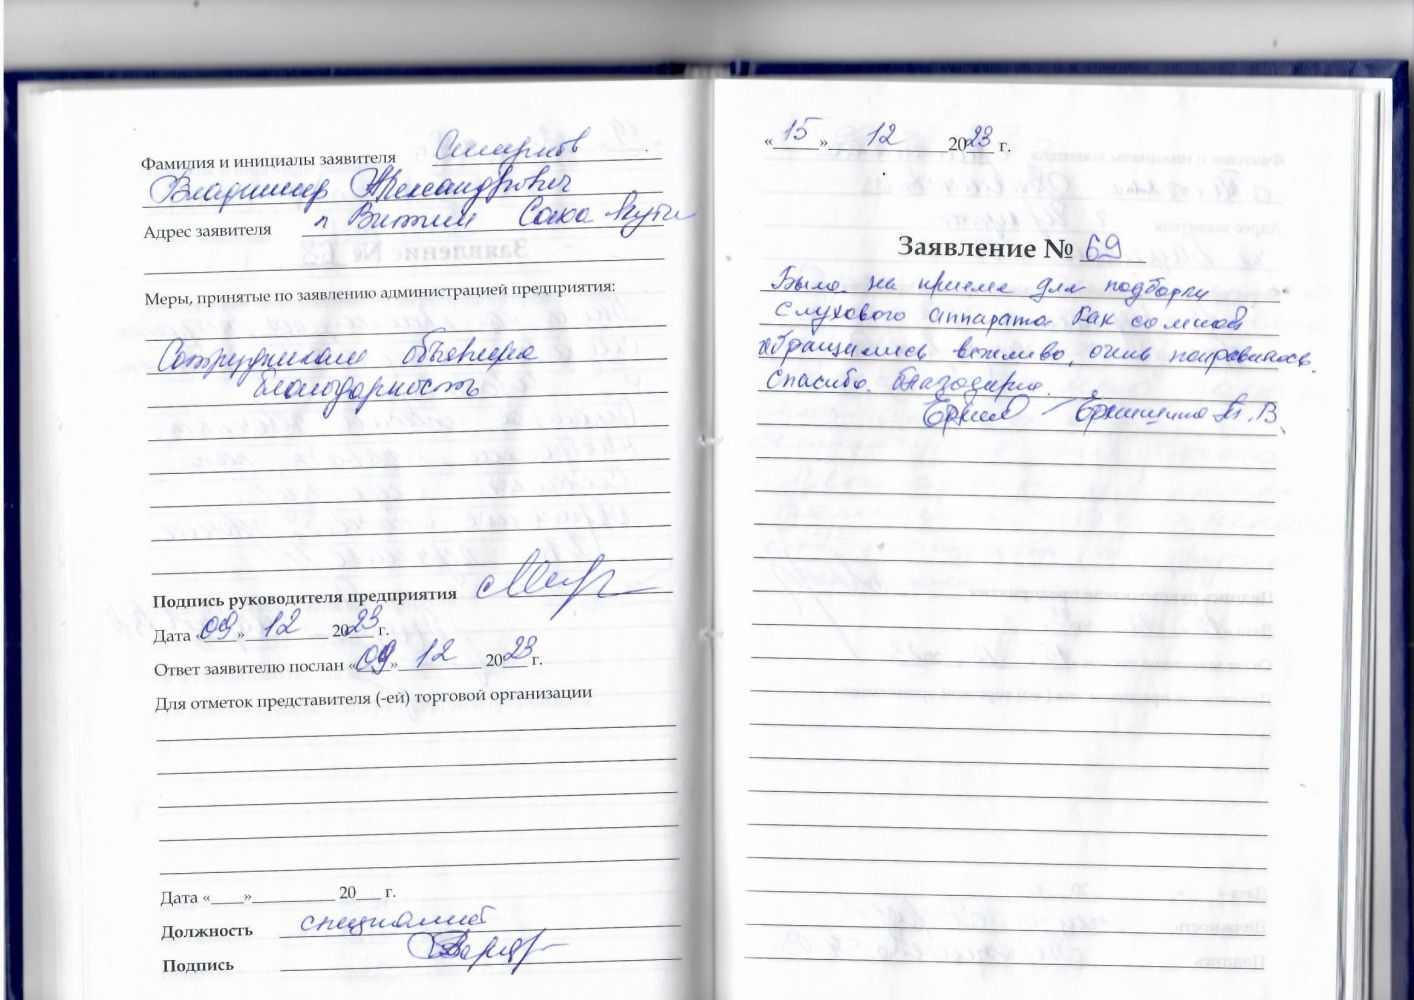 Фамилия и инициалы заявителя Смирнов
Владимир Александрович
Адрес заявителя п Витим Саха Якути
Меры, принятые по заявлению администрацией предприятия:
Сотрудникам объявлена
благодарность
Подпись руководителя предприятия
Дата «09» 12 2023 г.
Ответ заявителю послан «09» 12 2023 г.
Для отметок представителя (-ей) торговой организации
Дата «____»__________ 20___ г.
Должность специалист
Подпись
«15» 12 2023 г.
Заявление № 69
Была на приеме для подборки
слухового аппарата. Как со мной
обращались вежливо, очень понравилось.
Спасибо. Благодарю.